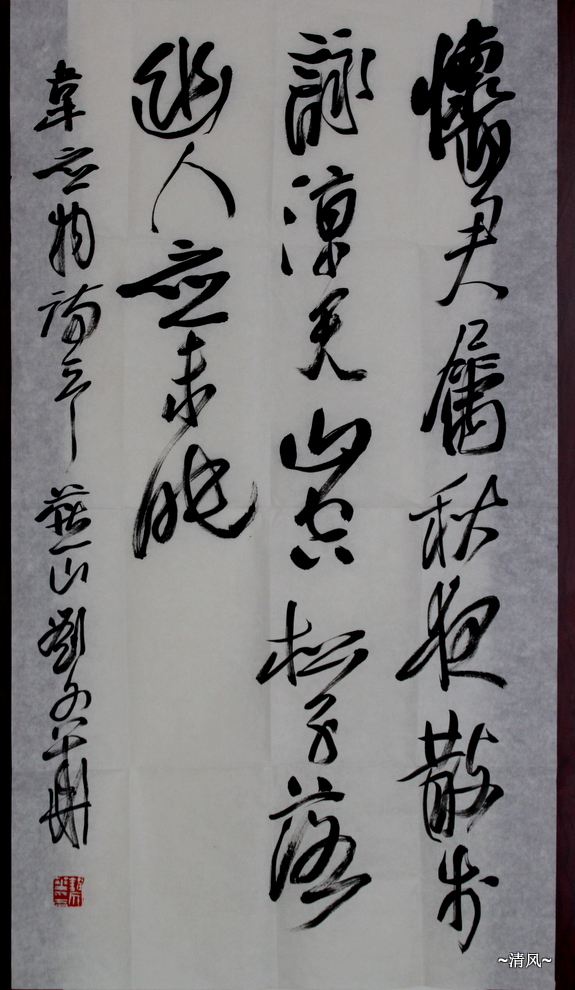 懷君屬秋夜散步
詠涼天山空松子落
幽人應未眠
韋應物詩 山劉
~清风~